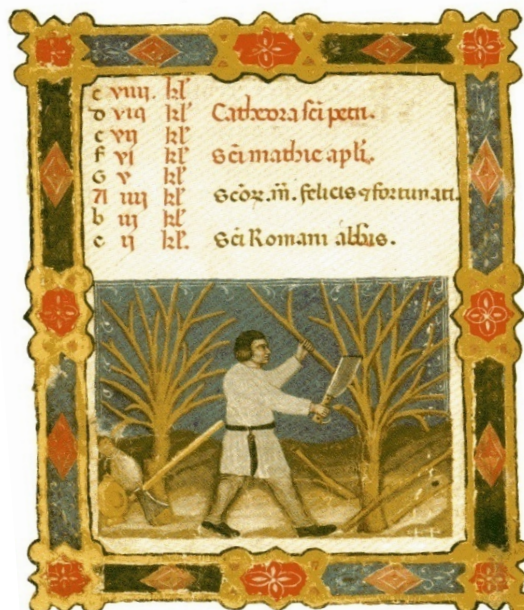 c viiii. kl
d viii kl Cathedra sci petri.
c vii kl
f vi kl Sci mathie apli.
G v kl
A iiii kl Scoꝝ. m̅. felicis ⁊ fortunati.
b iii kl
c ii kl. Sci Romani abbis.